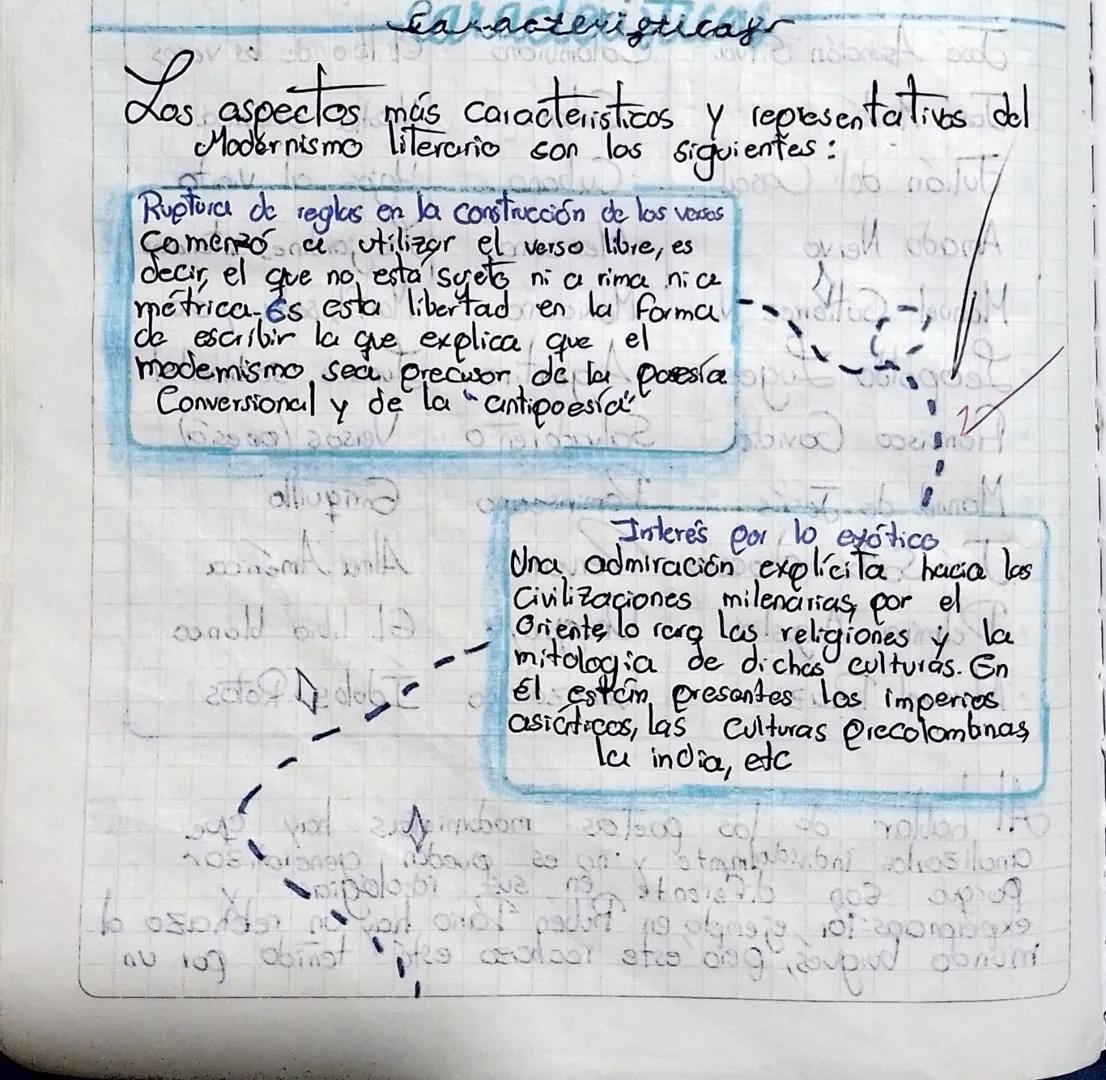 Características
Los aspectos más característicos y representativos del
Modernismo literario son los siguientes:
Ruptura de reglas en la construcción de los versos
Comenzó a utilizar el verso libre, es
decir, el que no está sujeto ni a rima ni a
métrica. Es esta libertad en la forma
de escribir la que explica que el
modernismo sea precusor de la poesía
Conversional y de la "antipoesía"
Interés por lo exótico
Una admiración explícita hacia las
Civilizaciones milenarias, por el
Oriente, lo raro, las religiones y la
mitología de dichas culturas. En
él están presentes los imperios
asiáticos, las culturas precolombinas,
la india, etc